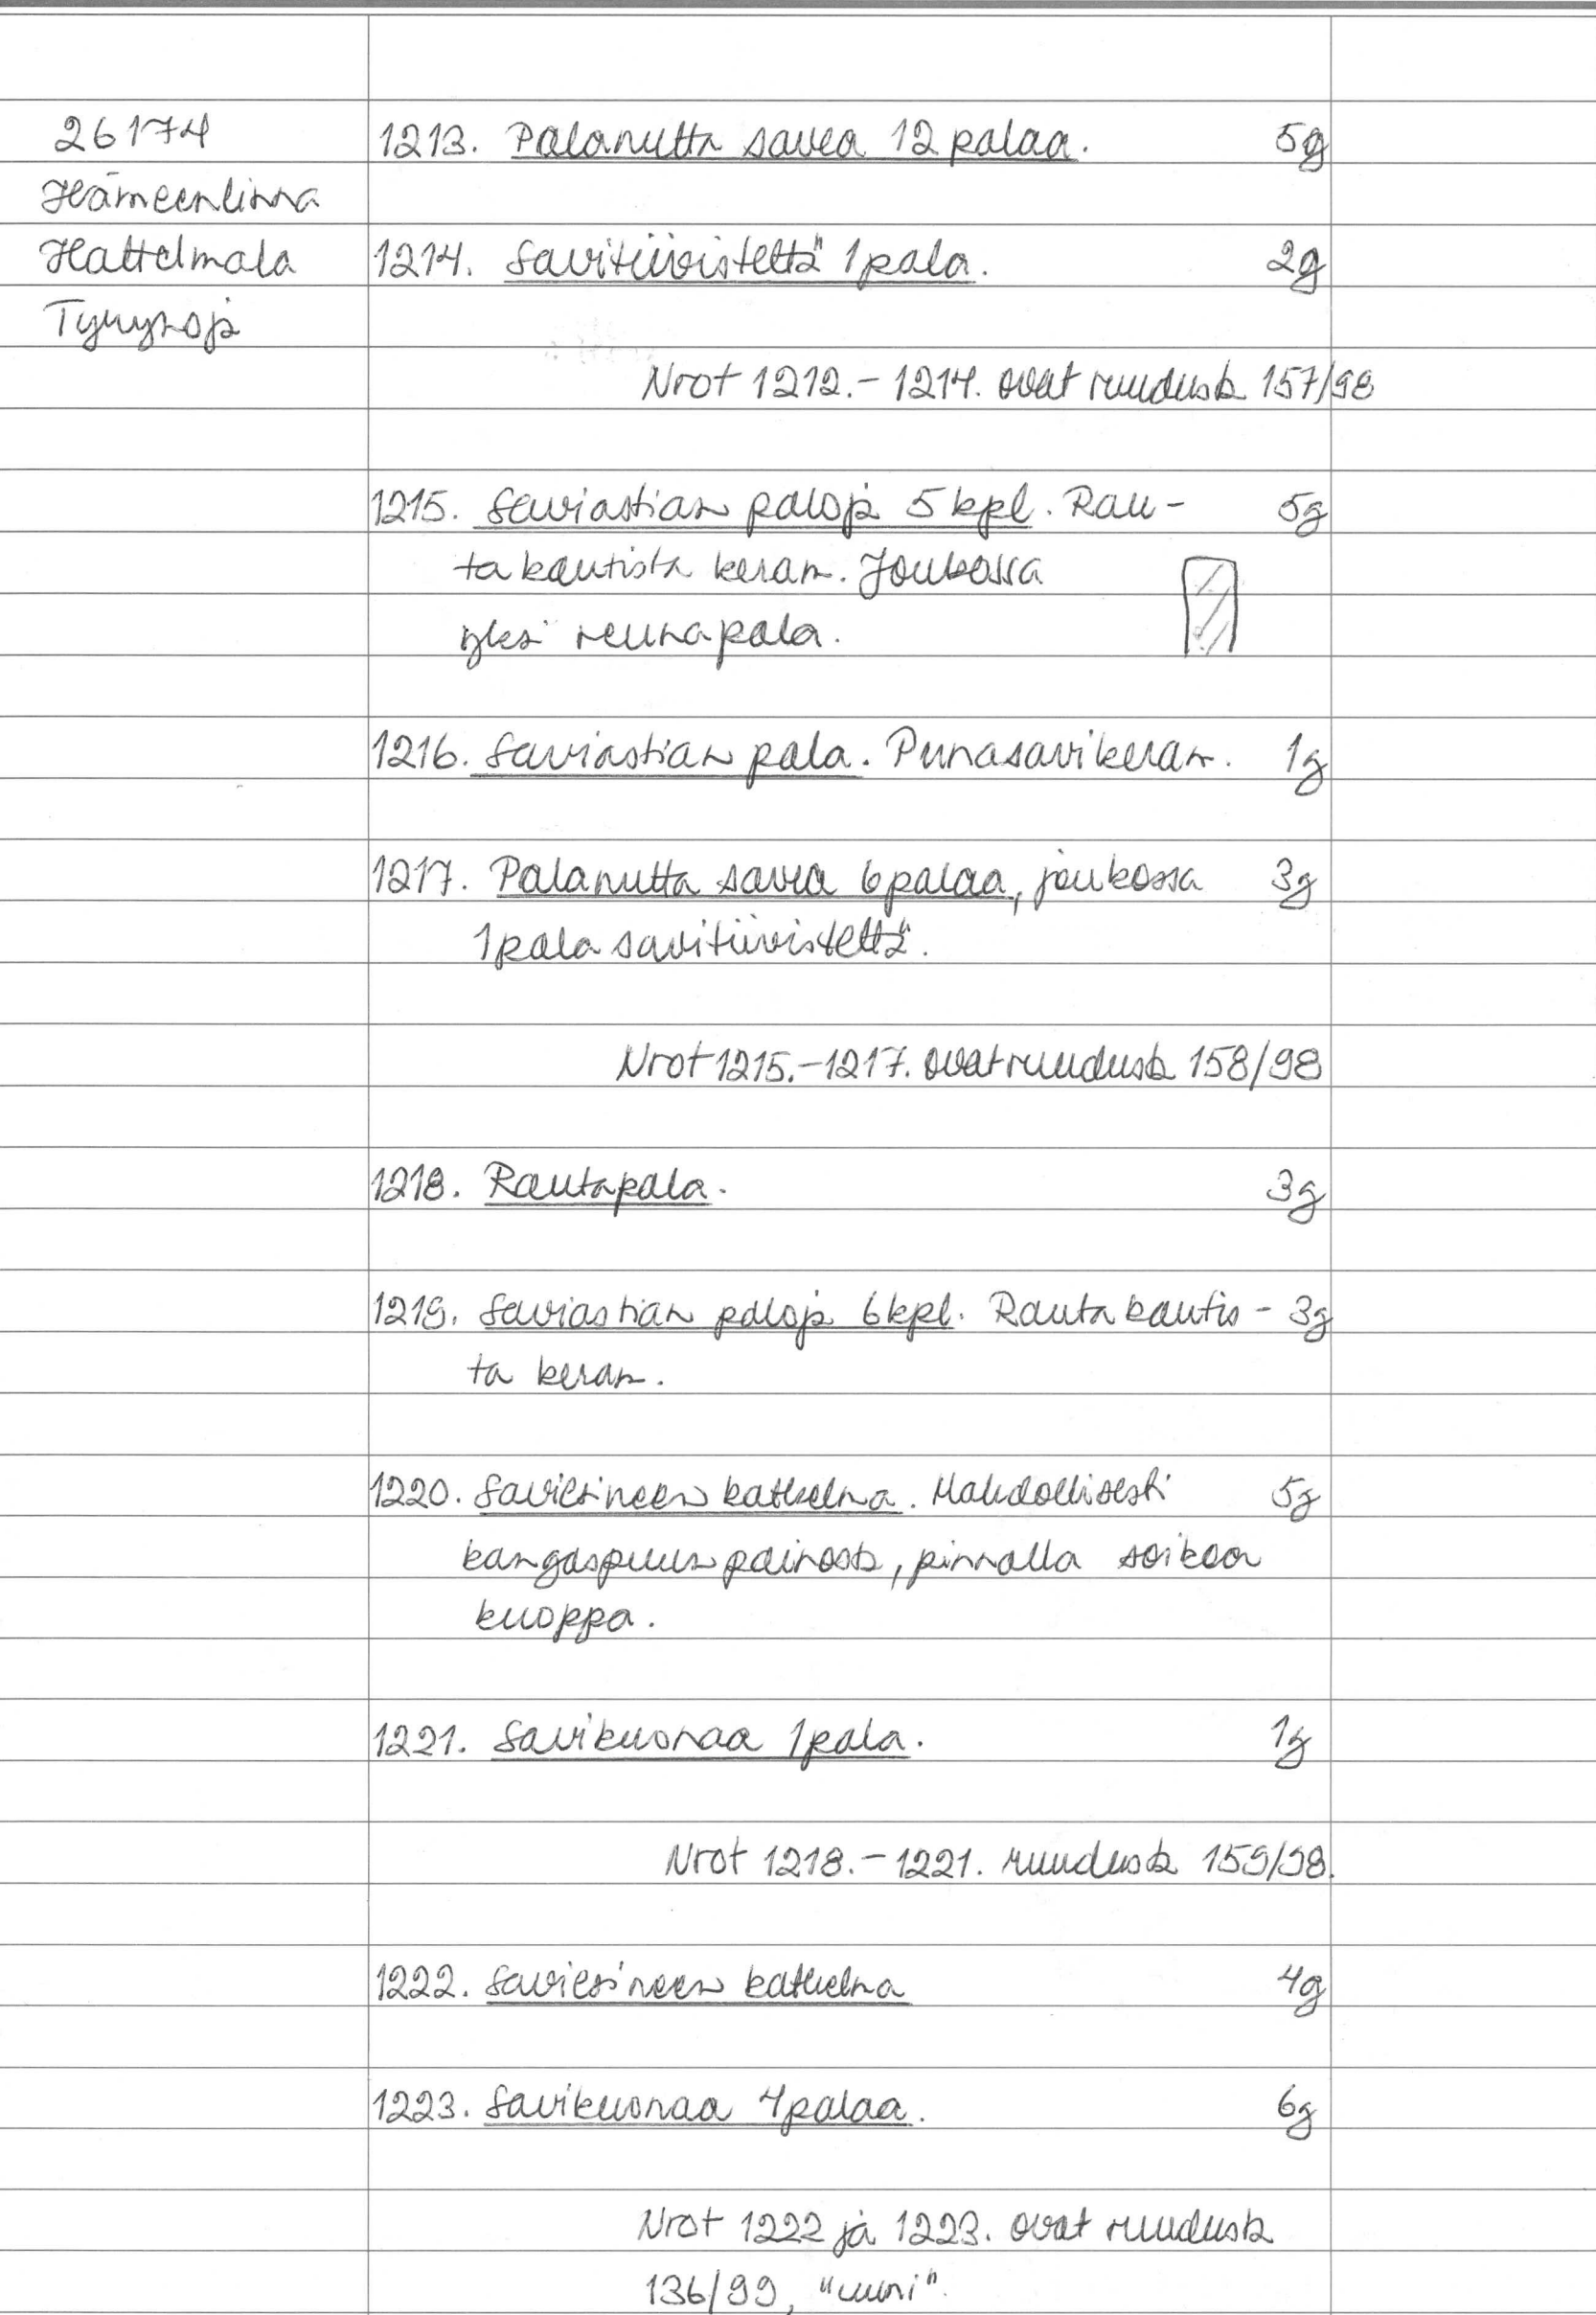 26174
Hämeenlinna
Hattelmala
Tyrynoja
1213. Palanutta savea 12 palaa. 5g
1214. Savitiivistettä 1 pala. 2g
Nrot 1212.-1214. ovat ruudusta 157/98
1215. Saviastian paloja 5 kpl. Rau- 5g
takautista keram. Joukossa
yksi reunapala.
1216. Saviastian pala. Punasavikeram. 1g
1217. Palanutta savea 6 palaa, joukossa 3g
1 pala savitiivistettä.
Nrot 1215.-1217. ovat ruudusta 158/98
1218. Rautapala. 3g
1219. Saviastian paloja 6 kpl. Rautakautis- 3g
ta keram.
1220. Saviesineen katkelma. Mahdollisesti 5g
kangaspuun painosta, pinnalla soikea
kuoppa.
1221. Savikuonaa 1 pala. 1g
Nrot 1218.-1221. ruudusta 159/98.
1222. Saviesineen katkelma 4g
1223. Savikuonaa 4 palaa. 6g
Nrot 1222 ja 1223. ovat ruudusta
136/99, "uuni".